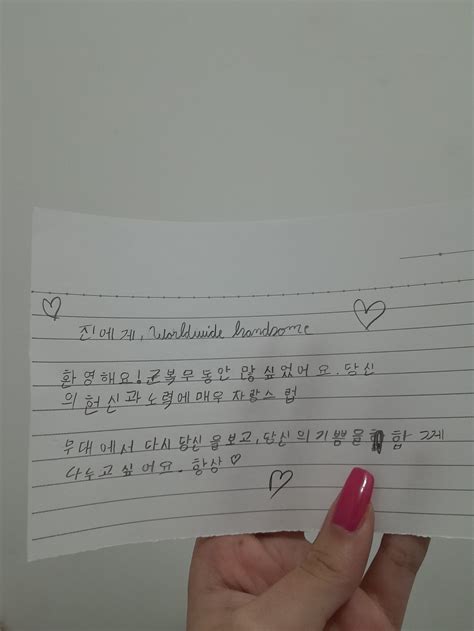 진에게, Worldwide handsome
환영해요! 군복무동안 많 싶었어 요. 당신
의 헌신과 노력에 매우 자랑스 럽
무대에서 다시 당신 을보고, 당신의 기쁨을 함 그게
다누고 싶어요. 항상